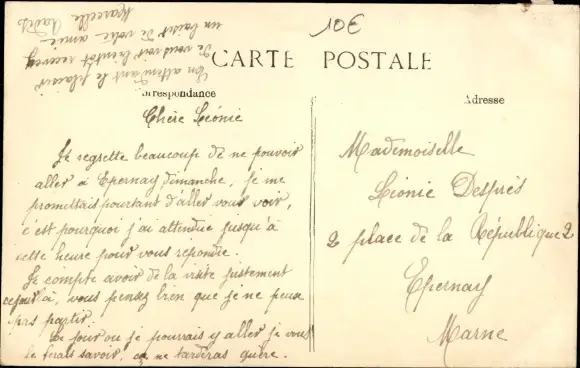 10€
CARTE POSTALE
Correspondance
Adresse
Chère Léonie
Je regrette beaucoup de ne pouvoir
aller à Epernay Dimanche, je me
promettais pourtant d'aller vous voir,
c'est pourquoi j'ai attendue jusqu'à
cette heure pour vous répondre.
Je compte avoir de la visite justement
ce jour là, vous pensez bien que je ne peux
pas partir.
Le jour ou je pourrais y aller je vous
le ferais savoir, ça ne tardiras guère.
En attendant le plaisir
de vous voir bientôt recevez
un baiser de votre amie
Marcelle
Mademoiselle
Léonie Després
2 place de la République 2
Epernay
Marne